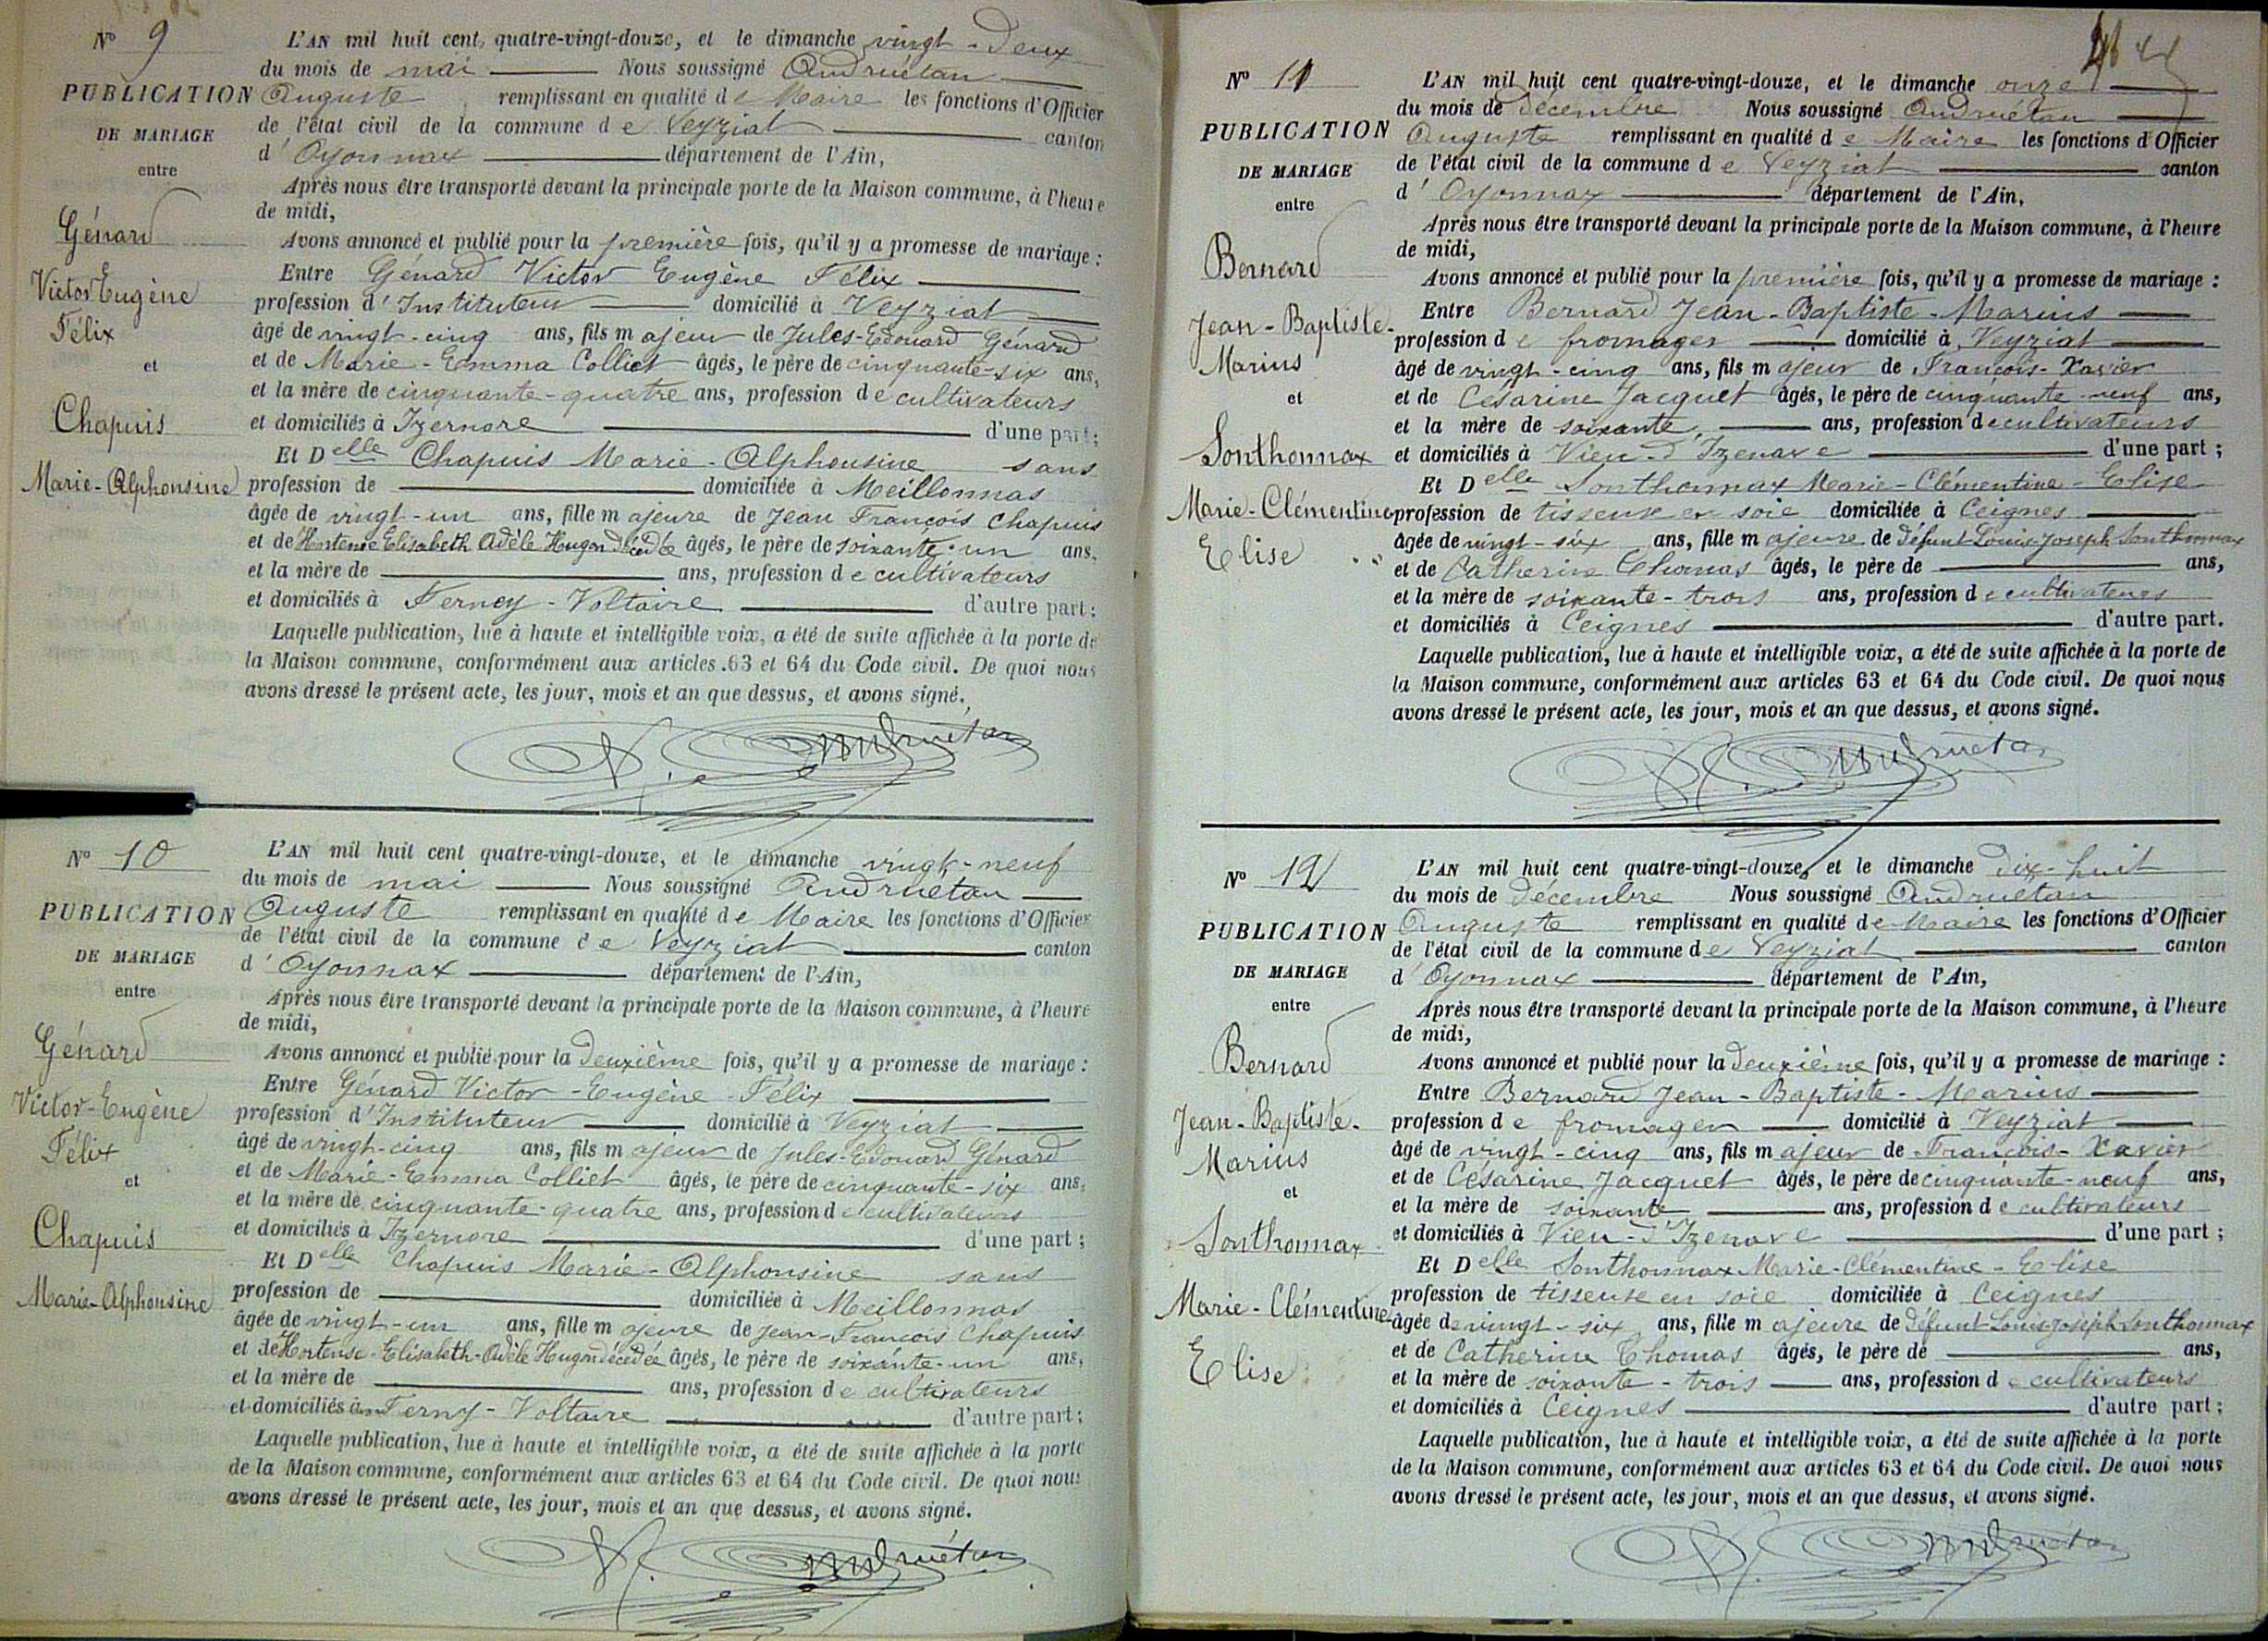 N° 9
PUBLICATION
DE MARIAGE
entre
Génard
Victor Eugène
Félix
et
Chapuis
Marie-Alphonsine
L'AN mil huit cent quatre-vingt-douze, et le dimanche vingt-deux
du mois de mai Nous soussigné Andruétan
Auguste remplissant en qualité de Maire les fonctions d'Officier
de l'état civil de la commune de Veyziat canton
d'Oyonnax département de l'Ain,
Après nous être transporté devant la principale porte de la Maison commune, à l'heure
de midi,
Avons annoncé et publié pour la première fois, qu'il y a promesse de mariage :
Entre Génard Victor Eugène Félix
profession d'Instituteur domicilié à Veyziat
âgé de vingt-cinq ans, fils majeur de Jules-Edouard Génard
et de Marie-Emma Colliet âgés, le père de cinquante-six ans,
et la mère de cinquante-quatre ans, profession de cultivateurs
et domiciliés à Izernore d'une part;
Et Delle Chapuis Marie-Alphonsine sans
profession de domiciliée à Meillonnas
âgée de vingt-un ans, fille majeure de Jean François Chapuis
et de Hortense Elisabeth Adèle Hugon décédée âgés, le père de soixante-un ans,
et la mère de ans, profession de cultivateurs
et domiciliés à Ferney-Voltaire d'autre part;
Laquelle publication, lue à haute et intelligible voix, a été de suite affichée à la porte de
la Maison commune, conformément aux articles 63 et 64 du Code civil. De quoi nous
avons dressé le présent acte, les jour, mois et an que dessus, et avons signé.
Andruétan
N° 10
PUBLICATION
DE MARIAGE
entre
Génard
Victor-Eugène
Félix
et
Chapuis
Marie-Alphonsine
L'AN mil huit cent quatre-vingt-douze, et le dimanche vingt-neuf
du mois de mai Nous soussigné Andruétan
Auguste remplissant en qualité de Maire les fonctions d'Officier
de l'état civil de la commune de Veyziat canton
d'Oyonnax département de l'Ain,
Après nous être transporté devant la principale porte de la Maison commune, à l'heure
de midi,
Avons annoncé et publié pour la deuxième fois, qu'il y a promesse de mariage :
Entre Génard Victor-Eugène Félix
profession d'Instituteur domicilié à Veyziat
âgé de vingt-cinq ans, fils majeur de Jules-Edouard Génard
et de Marie-Emma Colliet âgés, le père de cinquante-six ans,
et la mère de cinquante-quatre ans, profession de cultivateurs
et domiciliés à Izernore d'une part ;
Et Delle Chapuis Marie-Alphonsine sans
profession de domiciliée à Meillonnas
âgée de vingt-un ans, fille majeure de Jean-François Chapuis
et de Hortense-Elisabeth-Adèle Hugon décédée âgés, le père de soixante-un ans,
et la mère de ans, profession de cultivateurs
et domiciliés à Ferny-Voltaire d'autre part ;
Laquelle publication, lue à haute et intelligible voix, a été de suite affichée à la porte
de la Maison commune, conformément aux articles 63 et 64 du Code civil. De quoi nous
avons dressé le présent acte, les jour, mois et an que dessus, et avons signé.
Andruétan
N° 11
PUBLICATION
DE MARIAGE
entre
Bernard
Jean-Baptiste-
Marius
et
Sonthonnax
Marie-Clémentine
Elise
L'AN mil huit cent quatre-vingt-douze, et le dimanche onze
du mois de Décembre Nous soussigné Andruétan
Auguste remplissant en qualité de Maire les fonctions d'Officier
de l'état civil de la commune de Veyziat canton
d'Oyonnax département de l'Ain,
Après nous être transporté devant la principale porte de la Maison commune, à l'heure
de midi,
Avons annoncé et publié pour la première fois, qu'il y a promesse de mariage :
Entre Bernard Jean-Baptiste-Marius
profession de fromager domicilié à Veyziat
âgé de vingt-cinq ans, fils majeur de François-Xavier
et de Césarine Jacquet âgés, le père de cinquante-neuf ans,
et la mère de soixante ans, profession de cultivateurs
et domiciliés à Vieu-d'Izenave d'une part ;
Et Delle Sonthonnax Marie-Clémentine-Elise
profession de tisseuse en soie domiciliée à Ceignes
âgée de vingt-six ans, fille majeure de défunt Louis-Joseph Sonthonnax
et de Catherine Thomas âgés, le père de ans,
et la mère de soixante-trois ans, profession de cultivateurs
et domiciliés à Ceignes d'autre part.
Laquelle publication, lue à haute et intelligible voix, a été de suite affichée à la porte de
la Maison commune, conformément aux articles 63 et 64 du Code civil. De quoi nous
avons dressé le présent acte, les jour, mois et an que dessus, et avons signé.
Andruétan
N° 12
PUBLICATION
DE MARIAGE
entre
Bernard
Jean-Baptiste-
Marius
et
Sonthonnax
Marie-Clémentine
Elise
L'AN mil huit cent quatre-vingt-douze, et le dimanche dix-huit
du mois de Décembre Nous soussigné Andruétan
Auguste remplissant en qualité de Maire les fonctions d'Officier
de l'état civil de la commune de Veyziat canton
d'Oyonnax département de l'Ain,
Après nous être transporté devant la principale porte de la Maison commune, à l'heure
de midi,
Avons annoncé et publié pour la deuxième fois, qu'il y a promesse de mariage :
Entre Bernard Jean-Baptiste-Marius
profession de fromager domicilié à Veyziat
âgé de vingt-cinq ans, fils majeur de François-Xavier
et de Césarine Jacquet âgés, le père de cinquante-neuf ans,
et la mère de soixante ans, profession de cultivateurs
et domiciliés à Vieu-d'Izenave d'une part ;
Et Delle Sonthonnax Marie-Clémentine-Elise
profession de tisseuse en soie domiciliée à Ceignes
âgée de vingt-six ans, fille majeure de défunt Louis-Joseph Sonthonnax
et de Catherine Thomas âgés, le père de ans,
et la mère de soixante-trois ans, profession de cultivateurs
et domiciliés à Ceignes d'autre part ;
Laquelle publication, lue à haute et intelligible voix, a été de suite affichée à la porte
de la Maison commune, conformément aux articles 63 et 64 du Code civil. De quoi nous
avons dressé le présent acte, les jour, mois et an que dessus, et avons signé.
Andruétan